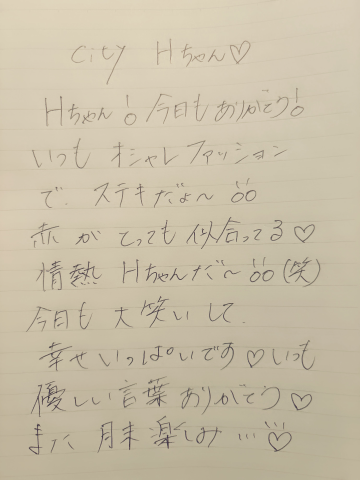 city Hちゃん♡
Hちゃん!今日もありがとう!
いつもオシャレファッション
で、ステキだよ〜!!
赤がとっても似合ってる♡
情熱Hちゃんだ〜!!(笑)
今日も大笑いして、
幸せいっぱいです♡いつも
優しい言葉ありがとう♡
また月末楽しみ…♡